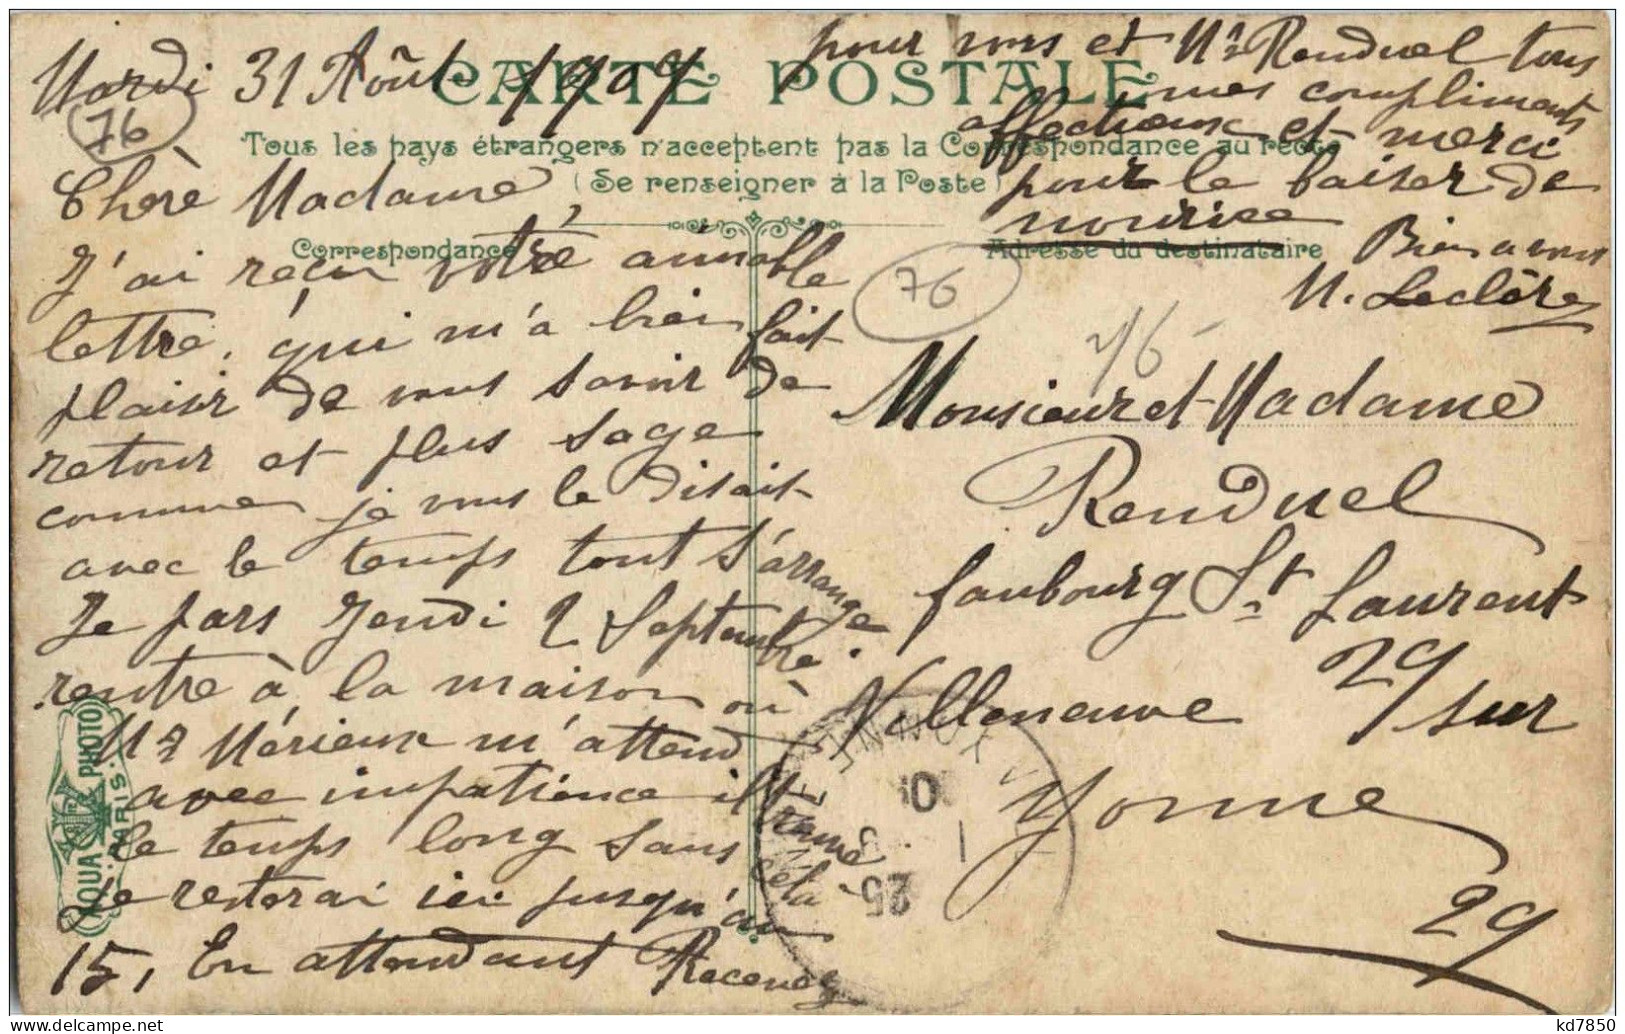 Mardi 31 Août 1909
76
CARTE POSTALE
Tous les pays étrangers n'acceptent pas la Correspondance au recto
(Se renseigner à la Poste)
Correspondance
Adresse du destinataire
Chère Madame,
J'ai reçu votre aimable
lettre, qui m'a bien fait
plaisir de vous savoir de
retour et plus sage
comme je vous le disait
avec le temps tout s'arrange.
Je pars Jeudi 2 Septembre
rentre à la maison où
Mr Mérieux m'attend
avec impatience il trouve
le temps long sans cela
je resterai ici jusqu'au
15, En attendant Recevez
pour vous et Mr Renduel tous
mes compliments
affectueux et merci
pour le baiser de
nourice
Bien a vous
M. Leclère
76
76
Monsieur et Madame
Renduel
faubourg St Laurent
29
Villeneuve sur
Yonne
29
25
AQUA PHOTO
PARIS.
kd7850